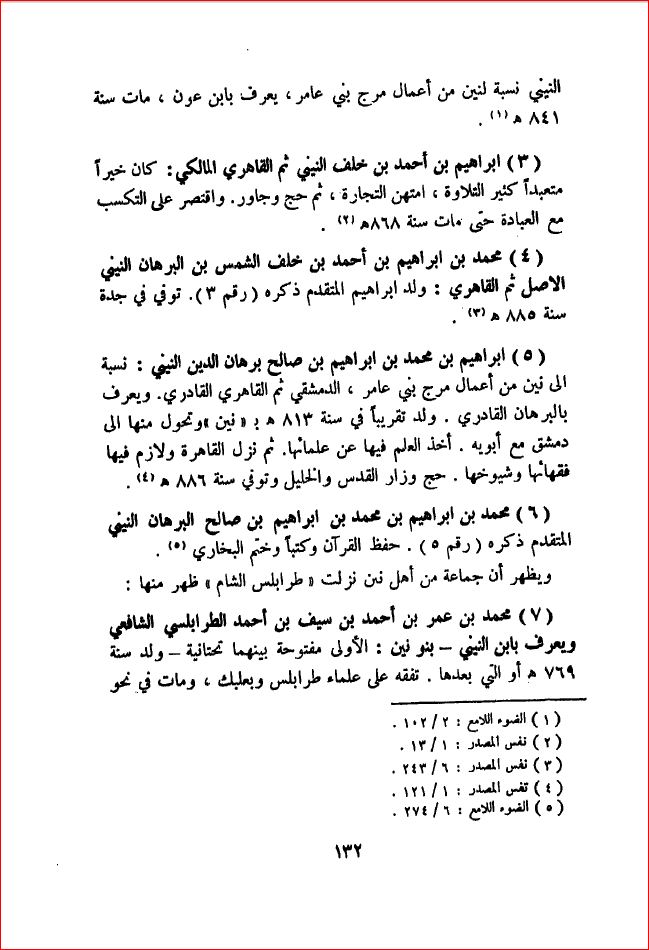 النيني نسبة لنين من أعمال مرج بني عامر ، يعرف بابن عون ، مات سنة
٨٤١ ه (١) .
( ٣ ) ابراهيم بن أحمد بن خلف النيني ثم القاهري المالكي : كان خيراً
متعبداً كثير التلاوة ، امتهن التجارة ، ثم حج وجاور. واقتصر على التكسب
مع العبادة حتى مات سنة ٨٦٨ه (٢) .
( ٤ ) محمد بن ابراهيم بن أحمد بن خلف الشمس بن البرهان النيني
الاصل ثم القاهري : ولد ابراهيم المتقدم ذكره ( رقم ٣ ). توفي في جدة
سنة ٨٨٥ ه (٣) .
( ٥ ) ابراهيم بن محمد بن ابراهيم بن صالح برهان الدين النيني : نسبة
الى نين من أعمال مرج بني عامر ، الدمشقي ثم القاهري القادري. ويعرف
بالبرهان القادري . ولد تقريباً في سنة ٨١٣ ه بـ « نين »وتحول منها الى
دمشق مع أبويه . أخذ العلم فيها عن علمائها. ثم نزل القاهرة ولازم فيها
فقهائها وشيوخها . حج وزار القدس والخليل وتوفي سنة ٨٨٦ ه (٤) .
( ٦ ) محمد بن ابراهيم بن محمد بن ابراهيم بن صالح البرهان النيني
المتقدم ذكره ( رقم ٥ ) . حفظ القرآن وكتباً وختم البخاري (٥) .
ويظهر أن جماعة من أهل نين نزلت « طرابلس الشام » ظهر منها :
( ٧ ) محمد بن عمر بن أحمد بن سيف بن أحمد الطرابلسي الشافعي
ويعرف بابن النيني – بنو نين : الأولى مفتوحة بينهما تحتانية – ولد سنة
٧٦٩ ه أو التي بعدها . تفقه على علماء طرابلس وبعلبك ، ومات في نحو
( ١ ) الضوء اللامع : ٢ / ١٠٢ .
( ٢ ) نفس المصدر : ١ / ١٣ .
( ٣ ) نفس المصدر : ٦ / ٢٤٣ .
( ٤ ) نفس المصدر : ١ / ١٢١ .
( ٥ ) الضوء اللامع : ٦ / ٢٧٤ .
١٣٢